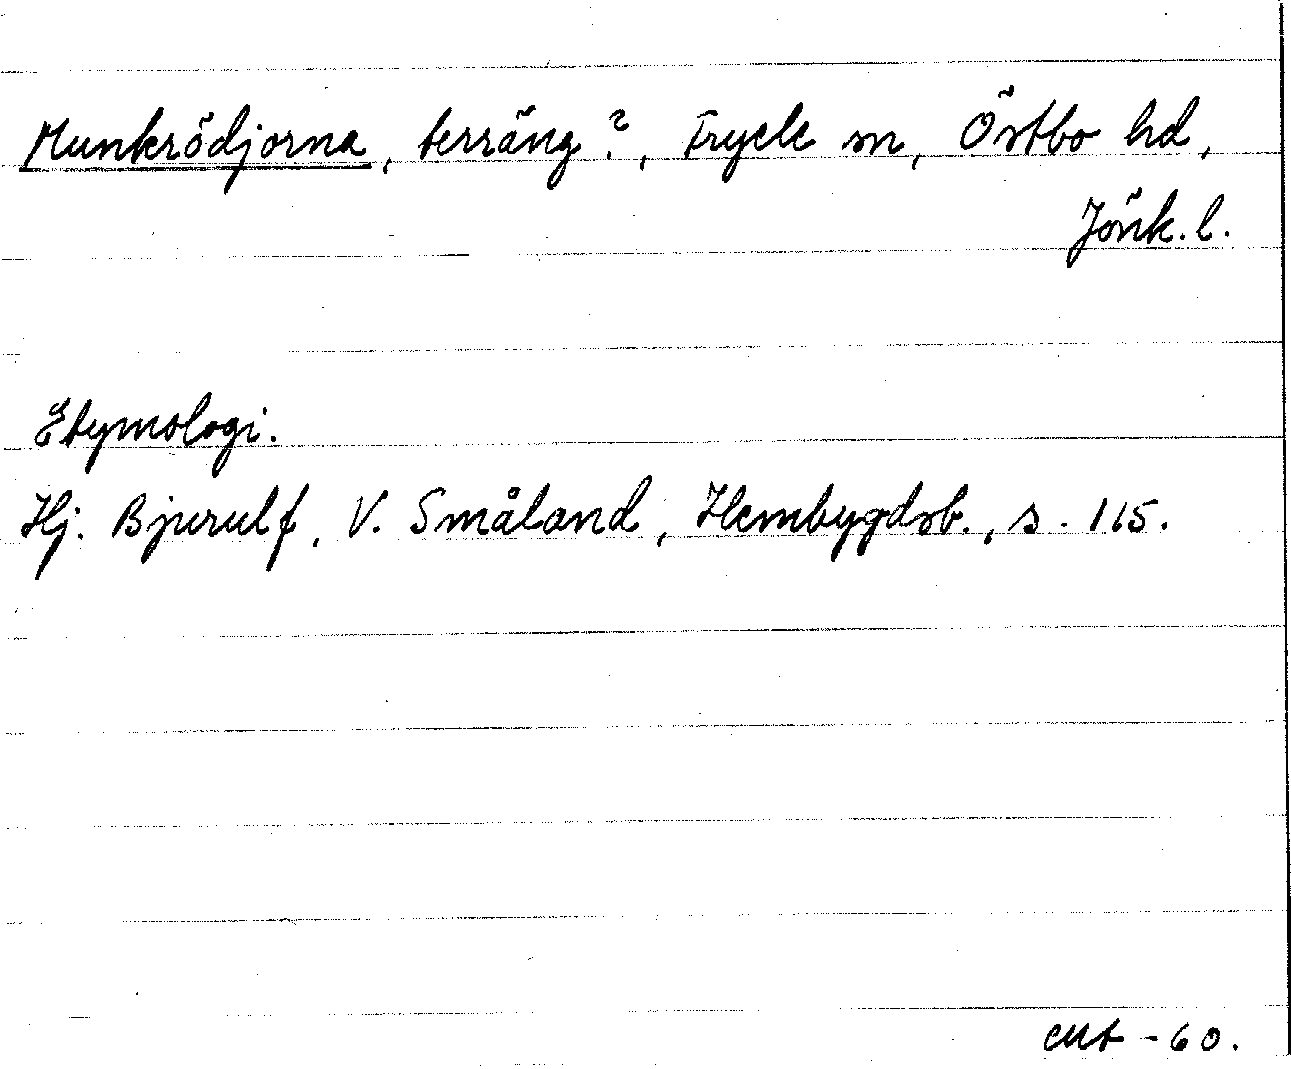 Munkrödjorna, terräng?, Fryele sn, Östbo hd,
Jönk. l.
Etymologi.
Hj. Bjurulf, V. Småland, Hembygdsb., s. 115.
-60.